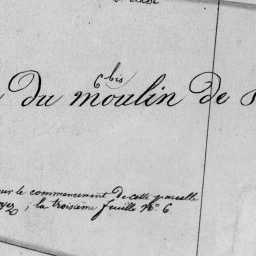 6 bis
du moulin de
le commencement de cette parcelle
; la troisième feuille N° 6